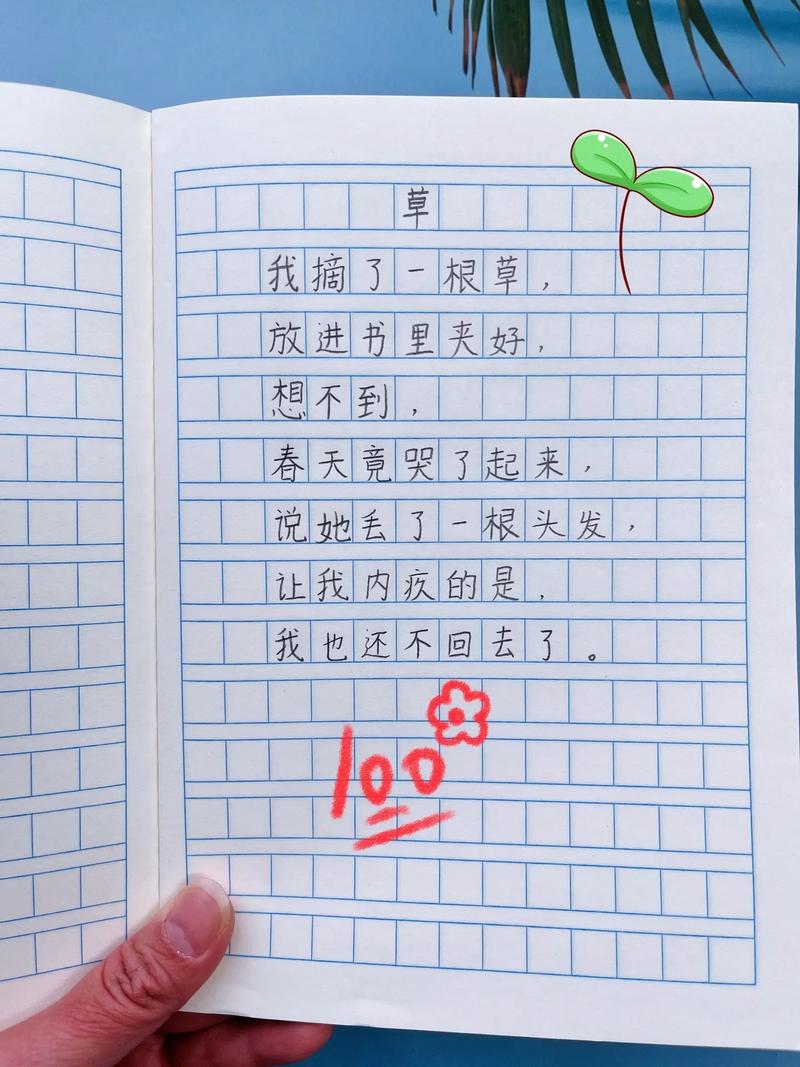 草
我摘了一根草，
放进书里夹好，
想不到，
春天竟哭了起来，
说她丢了一根头发，
让我内疚的是，
我也还不回去了。
100